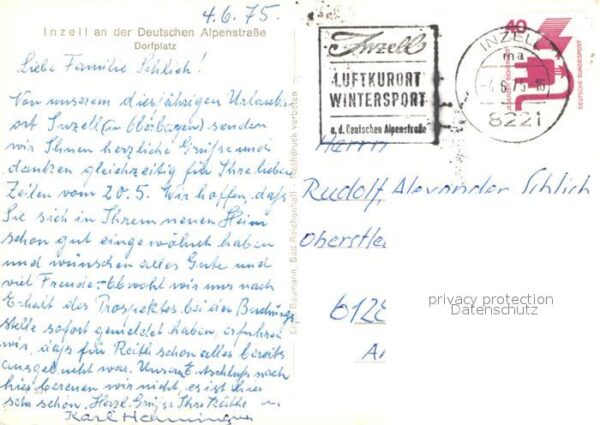 4.6.75.
Inzell an der Deutschen Alpenstraße
Dorfplatz
Liebe Familie Schlich!
Von unserem diesjährigen Urlaubs-
ort Inzell (in Oberbayern) senden
wir Ihnen herzliche Grüße und
danken gleichzeitig für Ihre lieben
Zeilen vom 20.5. Wir hoffen, daß
Sie sich in Ihrem neuen Heim
schon gut eingewöhnt haben
und wünschen alles Gute und
viel Freude. Obwohl wir uns nach
Erhalt des Prospektes bei der Buchungs-
stelle sofort gemeldet haben, erfuhren
wir, daß für Reith schon alles bereits
ausgebucht war. Unseren Entschluß nach
hier bereuen wir nicht, es ist hier
sehr schön. Herzl. Grüße Ihre Käthe u.
Karl Henninger
Baumann, Bad Reichenhall - Nachdruck verboten
Inzell
LUFTKURORT
WINTERSPORT
a. d. Deutschen Alpenstraße
INZELL
ma
-4.6.75-16
8221
40
DEUTSCHE BUNDESPOST
Herrn
Rudolf Alexander Schlich
Oberstle
612
privacy protection
Datenschutz